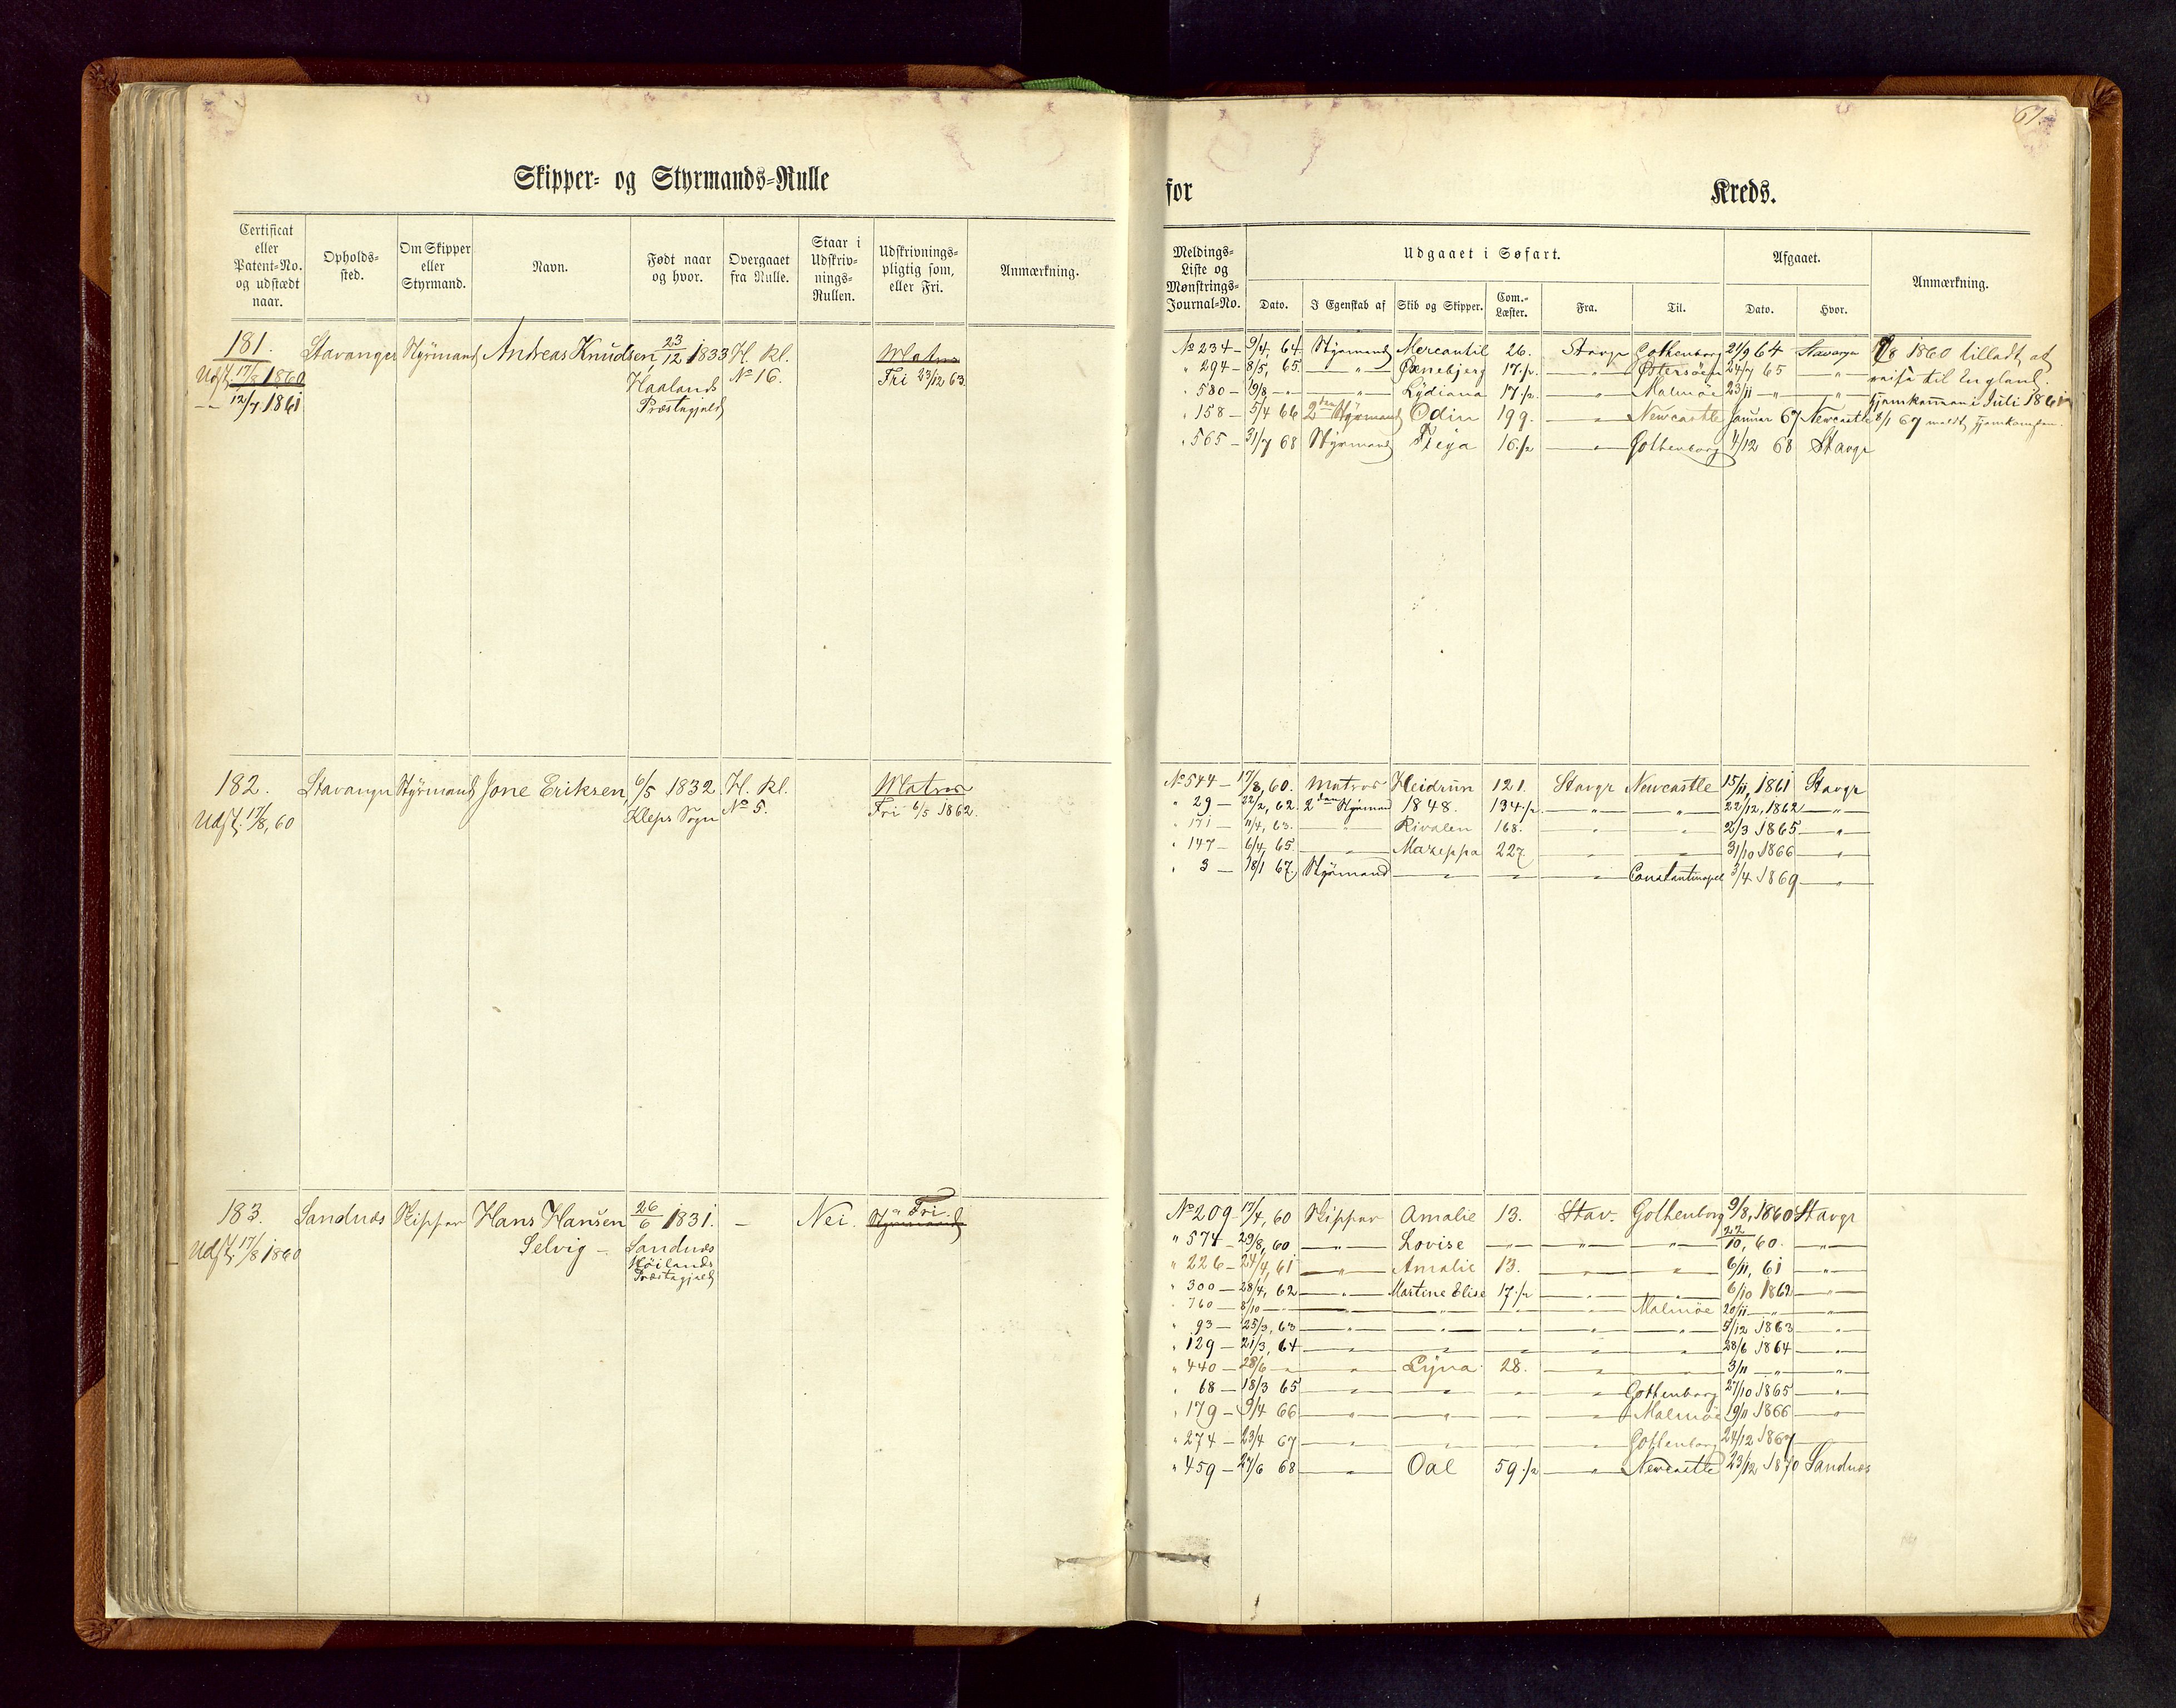 67.
Skipper- og Styrmands-Rulle
for
Kreds.
Certificat eller Patent-No. og udstædt naar.
Opholds-sted.
Om Skipper eller Styrmand.
Navn.
Født naar og hvor.
Overgaaet fra Rulle.
Staar i Udskriv-nings-Rullen.
Udskrivnings-pligtig som, eller Fri.
Anmærkning.
Meldings-Liste og Mønstrings-Journal-No.
Udgaaet i Søfart.
Dato.
I Egenskab af
Skib og Skipper.
Com.-Læster.
Fra.
Til.
Afgaaet.
Dato.
Hvor.
Anmærkning.
181. Stavanger Styrmand Andreas Knudsen, 23/12 1833 H. Kl. Matros
Udst. 17/8 1860 Haalands No 16. Fri 23/12 63
-"- 12/7 1861 Præstegjeld
No 234 - 9/4, 64 Styrmand Mercantil 26. Stavgr Gothenborg 21/9 64 Stavanger
" 294 - 8/5, 65. " 17 1/2 " Østersøen 24/7 65 "
" 580 - 19/8 - " " Lydiana 17 1/2. " Malmöe 23/11 - " "
" 158 - 5/4 66 2den Styrmand Odin 199. " Newcastle Januar 67 Newcastle
" 565 - 31/7 68 Styrmand Freya 16 1/2 " Gothenborg 4/12 68 Stavgr
1860 tilladt at
reise til England.
hjemkommen i Juli 1861
8/1 67 meldt hjemkommen.
182. Stavanger Styrmand Jone Eriksen, 6/5 1832 H. Kl. Matros
Udst. 17/8, 60 Kleps Sogn No 5. Fri 6/5 1862.
No 544 - 17/8, 60. Matros Heidrun 121. Stavgr Newcastle 15/11, 1861 Stavgr
" 29 - 22/2, 62. 2den Styrmand 1848. 134 1/2 " " 22/12, 1862 "
" 171 - 11/4, 63. " Rivalen 168. " " 2/3 1865 "
" 147 - 6/4, 65. " Mazeppa 227. " " 31/10 1866 "
" 3 - 18/1 67. Styrmand " " " Constantinopel 3/4 1869 "
183. Sandnæs Skipper Hans Hansen 26/6 1831. - Nei. Fri.
Udst. 17/8 1860 Selvig - Sandnæs Styrmand
Høilands
Præstegjeld
No 209 - 17/4, 60 Skipper Amalie 13. Stav. Gothenborg 9/8, 1860 Stavgr
" 574 - 29/8, 60 " Lovise " " " 22/10, 60. "
" 226 - 24/4, 61 " Amalie 13. " " 6/11, 61 "
" 300 - 28/4, 62 " Martine Elise 17 1/2 " " 6/10 1862 "
" 760 - 8/10 - " " " " " Malmöe 20/11 - " "
" 93 - 25/3, 63 " " " " " 5/12 1863 "
" 129 - 21/3, 64 " " " " " 28/6 1864 "
" 440 - 28/6 - " " Lyna 28. " " 3/11 - " "
" 68 - 18/3 65 " " " " Gothenborg 27/10 1865 "
" 179 - 9/4 66 " " " " Malmöe 19/11 1866 "
" 274 - 23/4 67 " " " " Gothenborg 24/12 1867
" 459 - 27/6 68 " Oal 59 1/2 " Newcastle 23/12 1870 Sandnæs